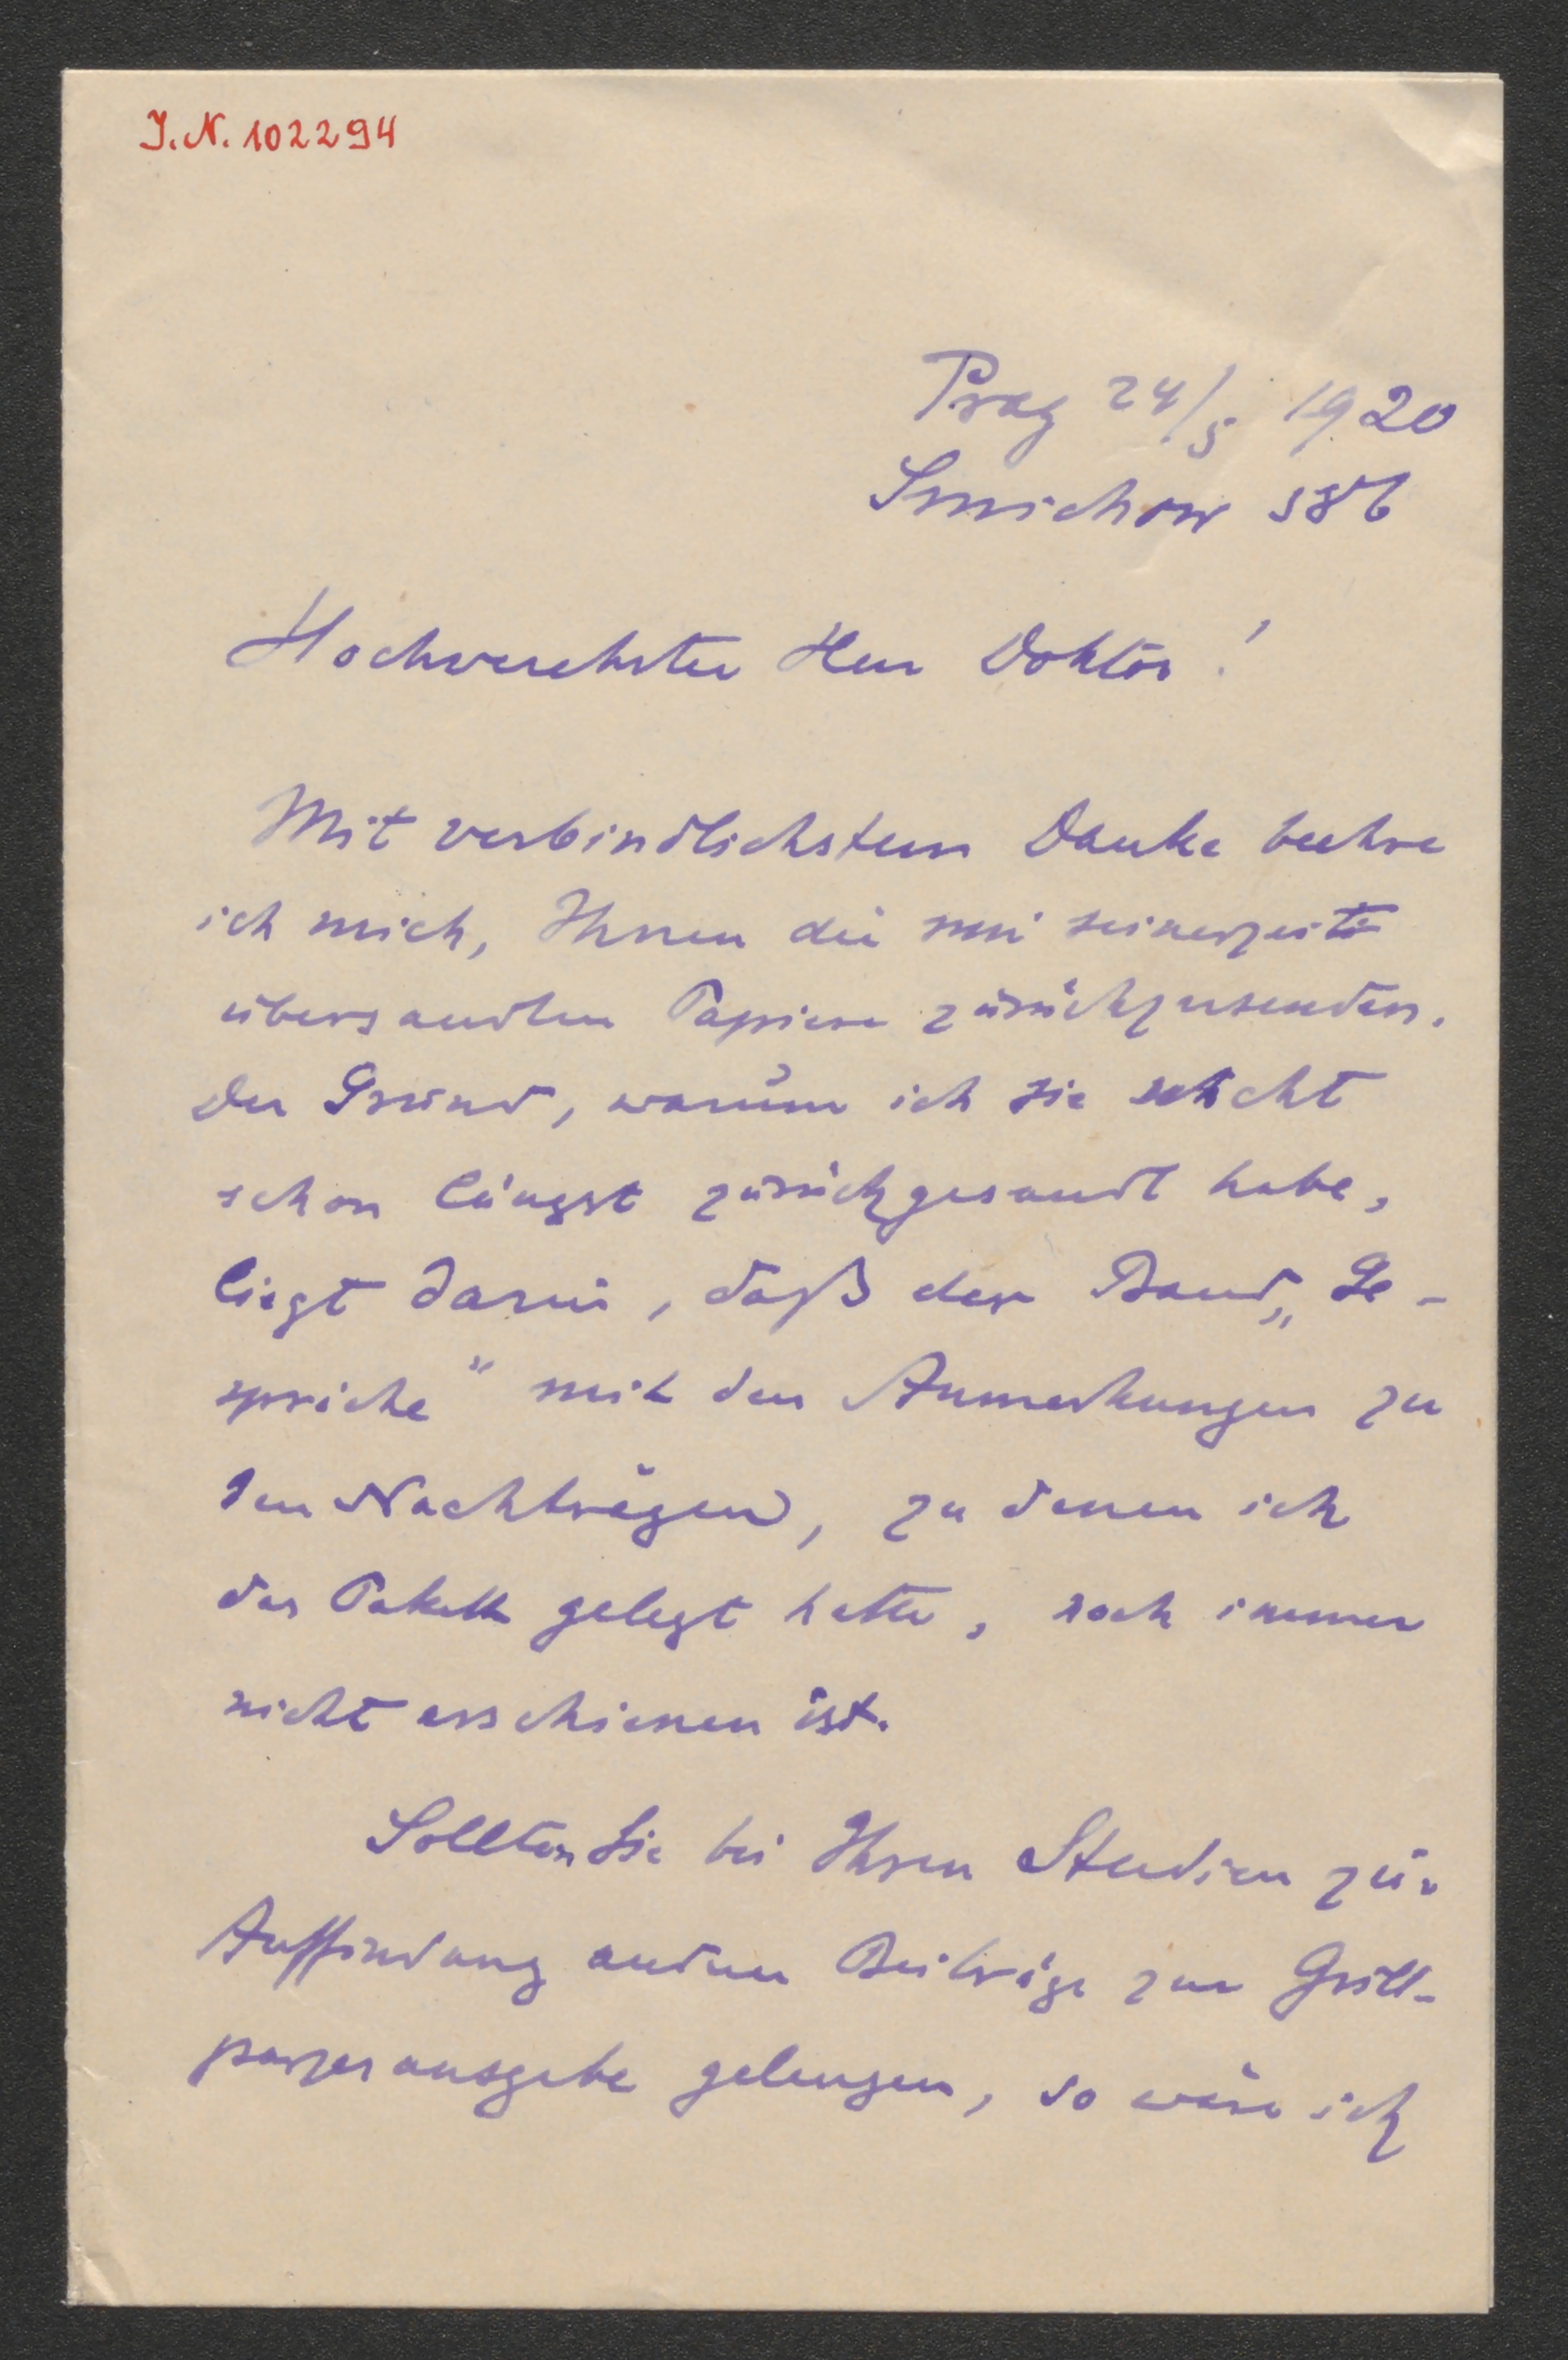 J.N. 102294
Prag 24/5 1920
Smichow 586
Hochverehrter Herr Doktor!
Mit verbindlichstem Danke beehre
ich mich, Ihnen die mir seinerzeit
übersandten Papiere zurückzusenden.
Der Grund, warum ich sie nicht
schon längst zurückgesandt habe,
liegt darin, daß der Band „Ge-
spräche“ mit den Anmerkungen zu
den Nachträgen, zu denen ich
das Paket gelegt hatte, noch immer
nicht erschienen ist.
Sollten Sie bei Ihren Studien zur
Auffindung andrer Beiträge zur Grill-
parzerausgabe gelangen, so wäre ich